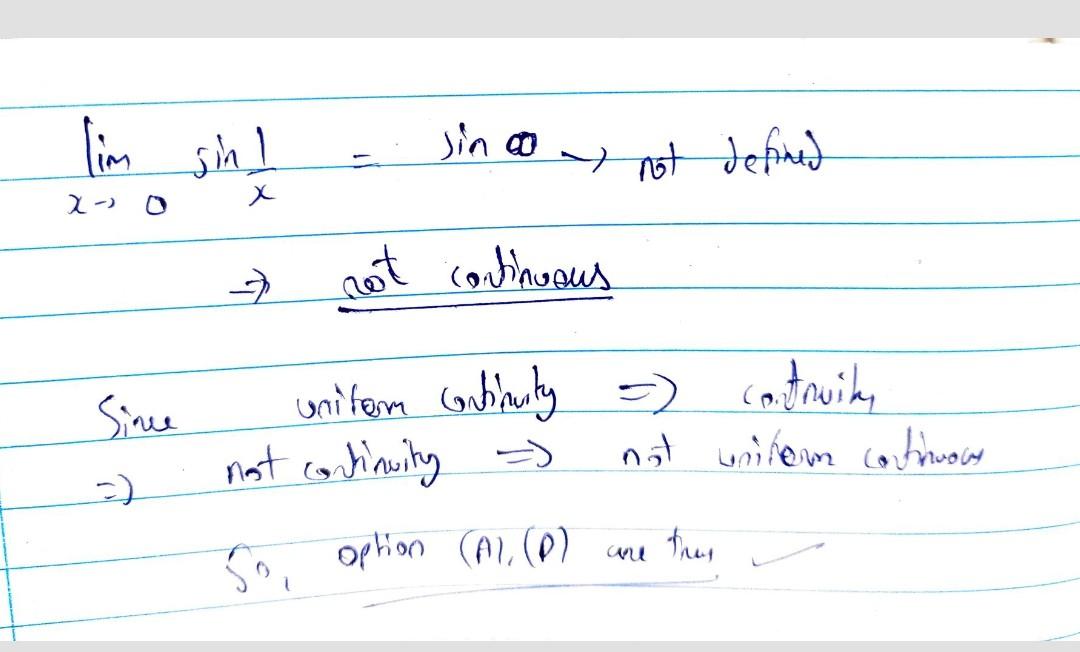 lim x→0 sin 1/x = sin ∞ → not defined
⇒ not continuous
Since uniform continuity ⇒ continuity
⇒ not continuity ⇒ not uniform continuous
So, option (A), (D) are true